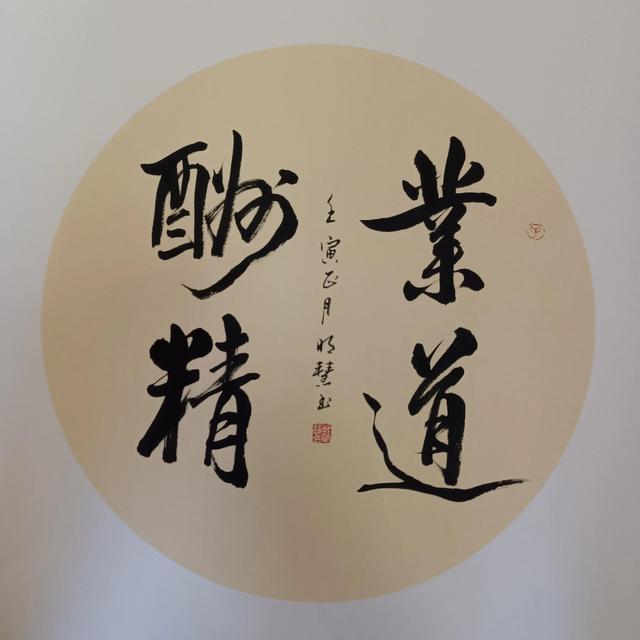 業道
酬精
壬寅正月明慧书